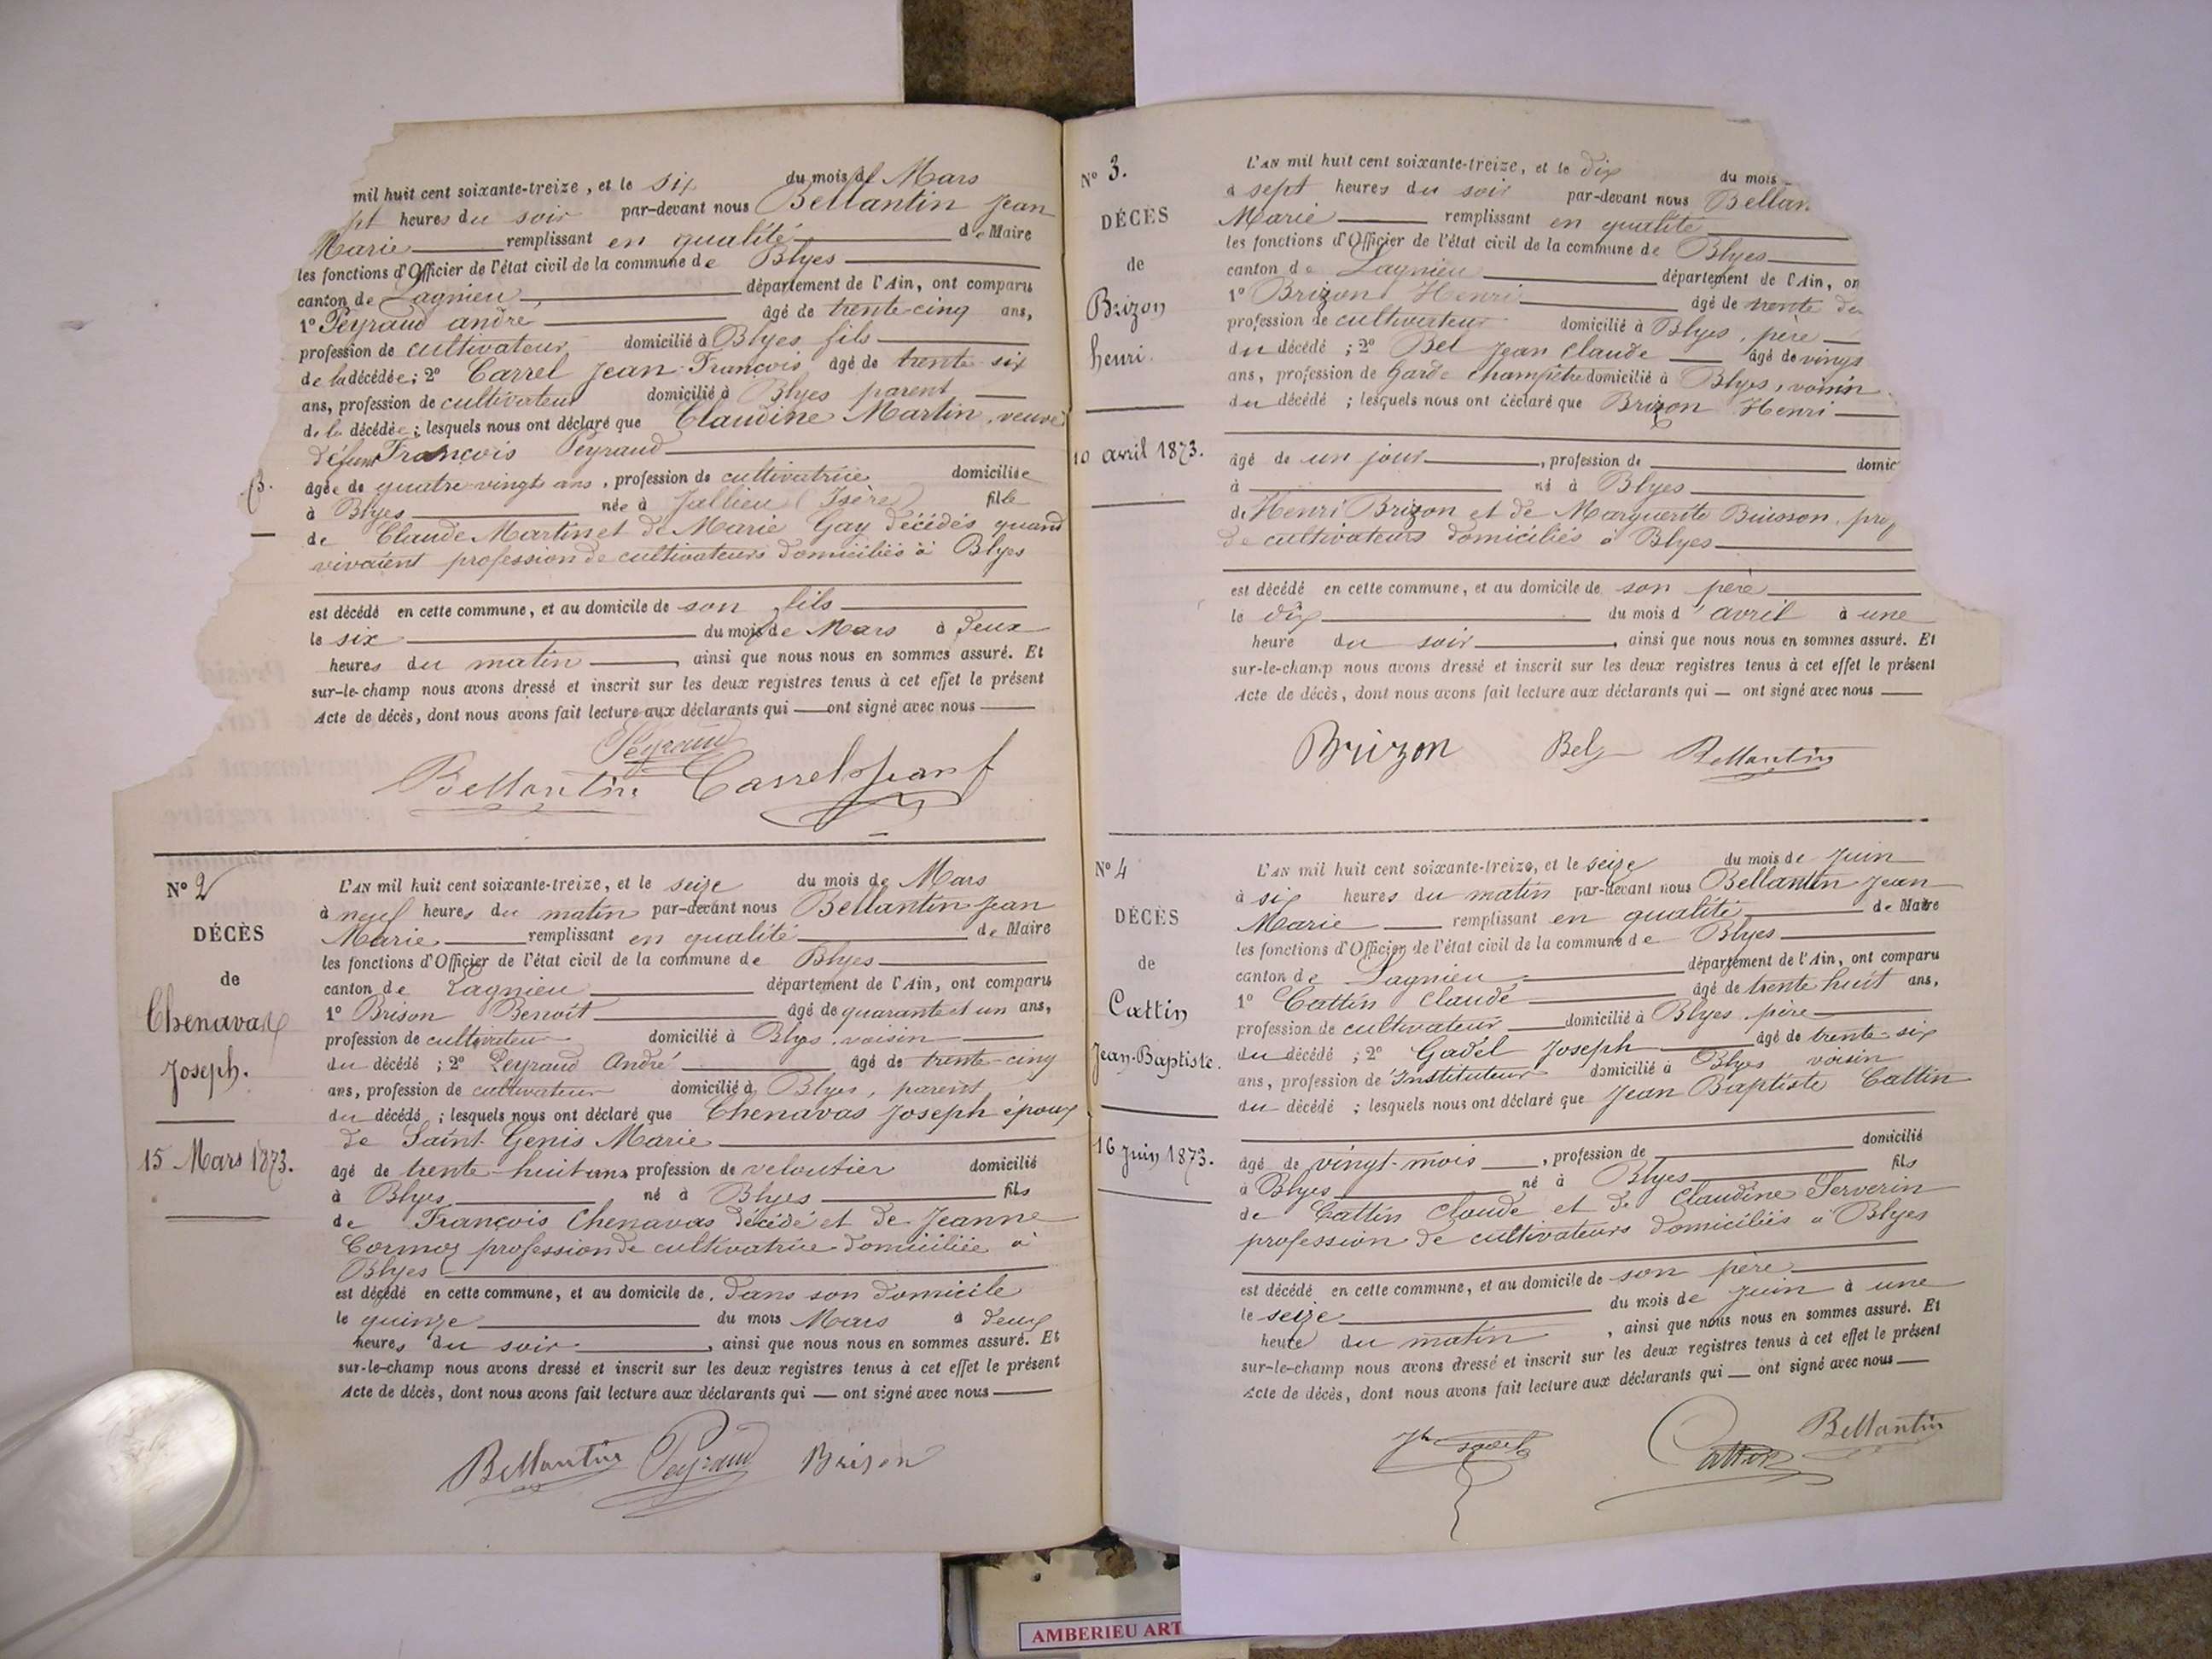 mil huit cent soixante-treize, et le six du mois de Mars
pt heures du soir par-devant nous Bellantin Jean
Marie remplissant en qualité de Maire
les fonctions d'Officier de l'état civil de la commune de Blyes
canton de Lagnieu département de l'Ain, ont comparu
1º Peyraud andré âgé de trente-cinq ans,
profession de cultivateur domicilié à Blyes fils
de la décédée; 2º Carrel Jean-François âgé de trente six
ans, profession de cultivateur domicilié à Blyes parent
de la décédée; lesquels nous ont déclaré que Claudine Martin, veuve
défunt François Peyraud
3.
âgée de quatre-vingts ans, profession de cultivatrice domiciliée
à Blyes née à Jallieu (Isère) fille
de Claude Martin et de Marie Gay décédés quand
vivaient profession de cultivateurs domiciliés à Blyes
est décédé en cette commune, et au domicile de son fils
le six du mois de Mars à deux
heures du matin, ainsi que nous nous en sommes assuré. Et
sur-le-champ nous avons dressé et inscrit sur les deux registres tenus à cet effet le présent
Acte de décès, dont nous avons fait lecture aux déclarants qui — ont signé avec nous
Peyraud
Bellantin Carrel
Nº 2
DÉCÈS
de
Chenavas
Joseph.
15 Mars 1873.
L'AN mil huit cent soixante-treize, et le seize du mois de Mars
à neuf heures du matin par-devant nous Bellantin Jean
Marie remplissant en qualité de Maire
les fonctions d'Officier de l'état civil de la commune de Blyes
canton de Lagnieu département de l'Ain, ont comparu
1º Brison Benoit âgé de quarante et un ans,
profession de cultivateur domicilié à Blyes, voisin
du décédé; 2º Peyraud André âgé de trente-cinq
ans, profession de cultivateur domicilié à Blyes, parent
du décédé; lesquels nous ont déclaré que Chenavas Joseph époux
de Saint-Genis Marie
âgé de trente-huit ans profession de veloutier domicilié
à Blyes né à Blyes fils
de François Chenavas décédé et de Jeanne
Cormoz profession de cultivatrice domiciliée à
Blyes
est décédé en cette commune, et au domicile de. dans son domicile
le quinze du mois Mars à deux
heures du soir, ainsi que nous nous en sommes assuré. Et
sur-le-champ nous avons dressé et inscrit sur les deux registres tenus à cet effet le présent
Acte de décès, dont nous avons fait lecture aux déclarants qui — ont signé avec nous
Bellantin Peyraud Brison
Nº 3.
DÉCÈS
de
Brizon
henri.
10 avril 1873.
L'AN mil huit cent soixante-treize, et le dix du mois
à sept heures du soir par-devant nous Bellan
Marie remplissant en qualité
les fonctions d'Officier de l'état civil de la commune de Blyes
canton de Lagnieu département de l'Ain, on
1º Brizon Henri âgé de trente de
profession de cultivateur domicilié à Blyes, père
du décédé; 2º Bel Jean Claude âgé de vingt
ans, profession de Garde champêtre domicilié à Blyes, voisin
du décédé; lesquels nous ont déclaré que Brizon Henri
âgé de un jour, profession de domic
à né à Blyes
de Henri Brizon et de Marguerite Buisson, prof
de cultivateurs domiciliés à Blyes
est décédé en cette commune, et au domicile de son père
le dix du mois d'avril à une
heure du soir, ainsi que nous nous en sommes assuré. Et
sur-le-champ nous avons dressé et inscrit sur les deux registres tenus à cet effet le présent
Acte de décès, dont nous avons fait lecture aux déclarants qui — ont signé avec nous
Brizon Bel Bellantin
Nº 4
DÉCÈS
de
Cattin
Jean-Baptiste.
16 Juin 1873.
L'AN mil huit cent soixante-treize, et le seize du mois de Juin
à six heures du matin par-devant nous Bellantin Jean
Marie remplissant en qualité de Maire
les fonctions d'Officier de l'état civil de la commune de Blyes
canton de Lagnieu département de l'Ain, ont comparu
1º Cattin Claude âgé de trente huit ans,
profession de cultivateur domicilié à Blyes père
du décédé; 2º Gadel Joseph âgé de trente-six
ans, profession d'Instituteur domicilié à Blyes voisin
du décédé; lesquels nous ont déclaré que Jean Baptiste Cattin
âgé de vingt-mois, profession de domicilié
à Blyes né à Blyes fils
de Cattin Claude et de Claudine Serverin
profession de cultivateurs domiciliés à Blyes
est décédé en cette commune, et au domicile de son père
le seize du mois de Juin à une
heure du matin, ainsi que nous nous en sommes assuré. Et
sur-le-champ nous avons dressé et inscrit sur les deux registres tenus à cet effet le présent
Acte de décès, dont nous avons fait lecture aux déclarants qui — ont signé avec nous
Jh Gadel Cattin Bellantin
AMBERIEU ART